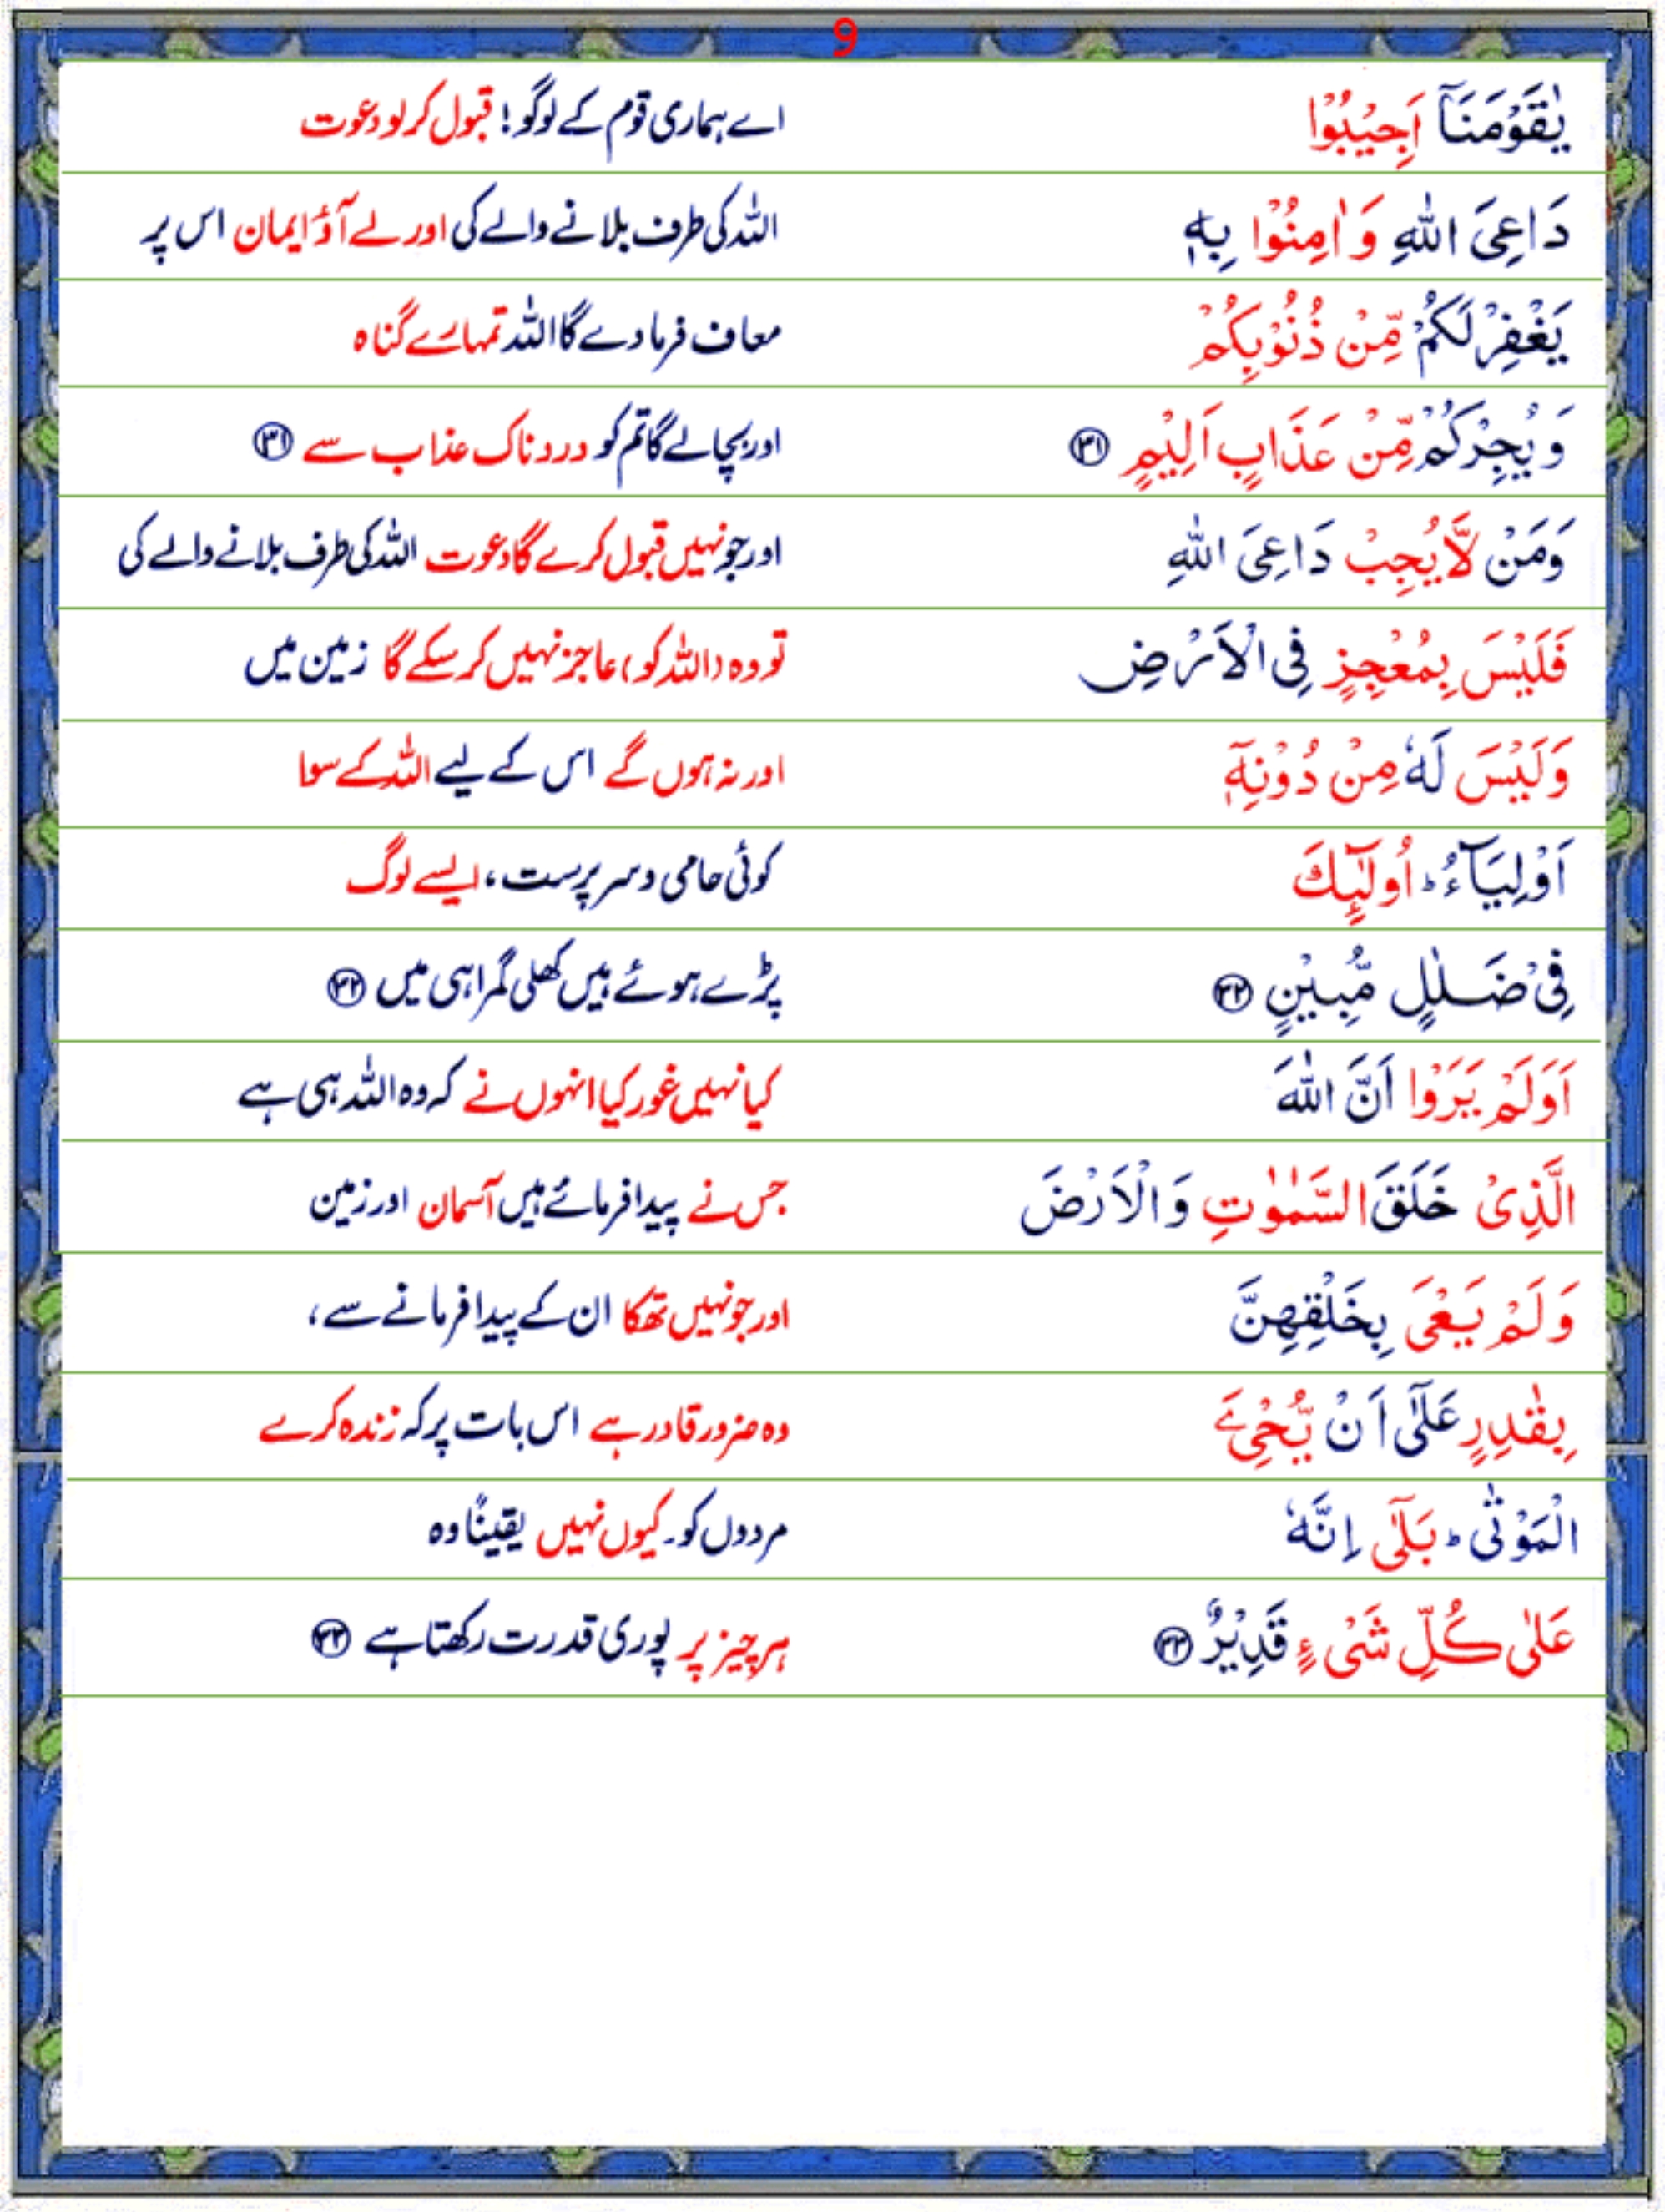 9
يٰقَوْمَنَآ اَجِيْبُوْا اے ہماری قوم کے لوگو! قبول کر لو دعوت
دَاعِيَ اللّٰهِ وَاٰمِنُوْا بِهٖ اللہ کی طرف بلانے والے کی اور لے آؤ ایمان اس پر
يَغْفِرْ لَكُمْ مِّنْ ذُنُوْبِكُمْ معاف فرما دے گا اللہ تمہارے گناہ
وَيُجِرْكُمْ مِّنْ عَذَابٍ اَلِيْمٍ ۳۱ اور بچا لے گا تم کو دردناک عذاب سے ۳۱
وَمَنْ لَّا يُجِبْ دَاعِيَ اللّٰهِ اور جو نہیں قبول کرے گا دعوت اللہ کی طرف بلانے والے کی
فَلَيْسَ بِمُعْجِزٍ فِي الْاَرْضِ تو وہ (اللہ کو) عاجز نہیں کر سکے گا زمین میں
وَلَيْسَ لَهٗ مِنْ دُوْنِهٖٓ اور نہ ہوں گے اس کے لیے اللہ کے سوا
اَوْلِيَآءُ ؕ اُولٰٓئِكَ کوئی حامی و سرپرست، ایسے لوگ
فِيْ ضَلٰلٍ مُّبِيْنٍ ۳۲ پڑے ہوئے ہیں کھلی گمراہی میں ۳۲
اَوَلَمْ يَرَوْا اَنَّ اللّٰهَ کیا نہیں غور کیا انہوں نے کہ وہ اللہ ہی ہے
الَّذِيْ خَلَقَ السَّمٰوٰتِ وَالْاَرْضَ جس نے پیدا فرمائے ہیں آسمان اور زمین
وَلَمْ يَعْيَ بِخَلْقِهِنَّ اور جو نہیں تھکا ان کے پیدا فرمانے سے،
بِقٰدِرٍ عَلٰٓى اَنْ يُّحْيِۦَ وہ ضرور قادر ہے اس بات پر کہ زندہ کرے
الْمَوْتٰى ؕ بَلٰٓى اِنَّهٗ مردوں کو۔ کیوں نہیں یقیناً وہ
عَلٰى كُلِّ شَيْءٍ قَدِيْرٌ ۳۳ ہر چیز پر پوری قدرت رکھتا ہے ۳۳